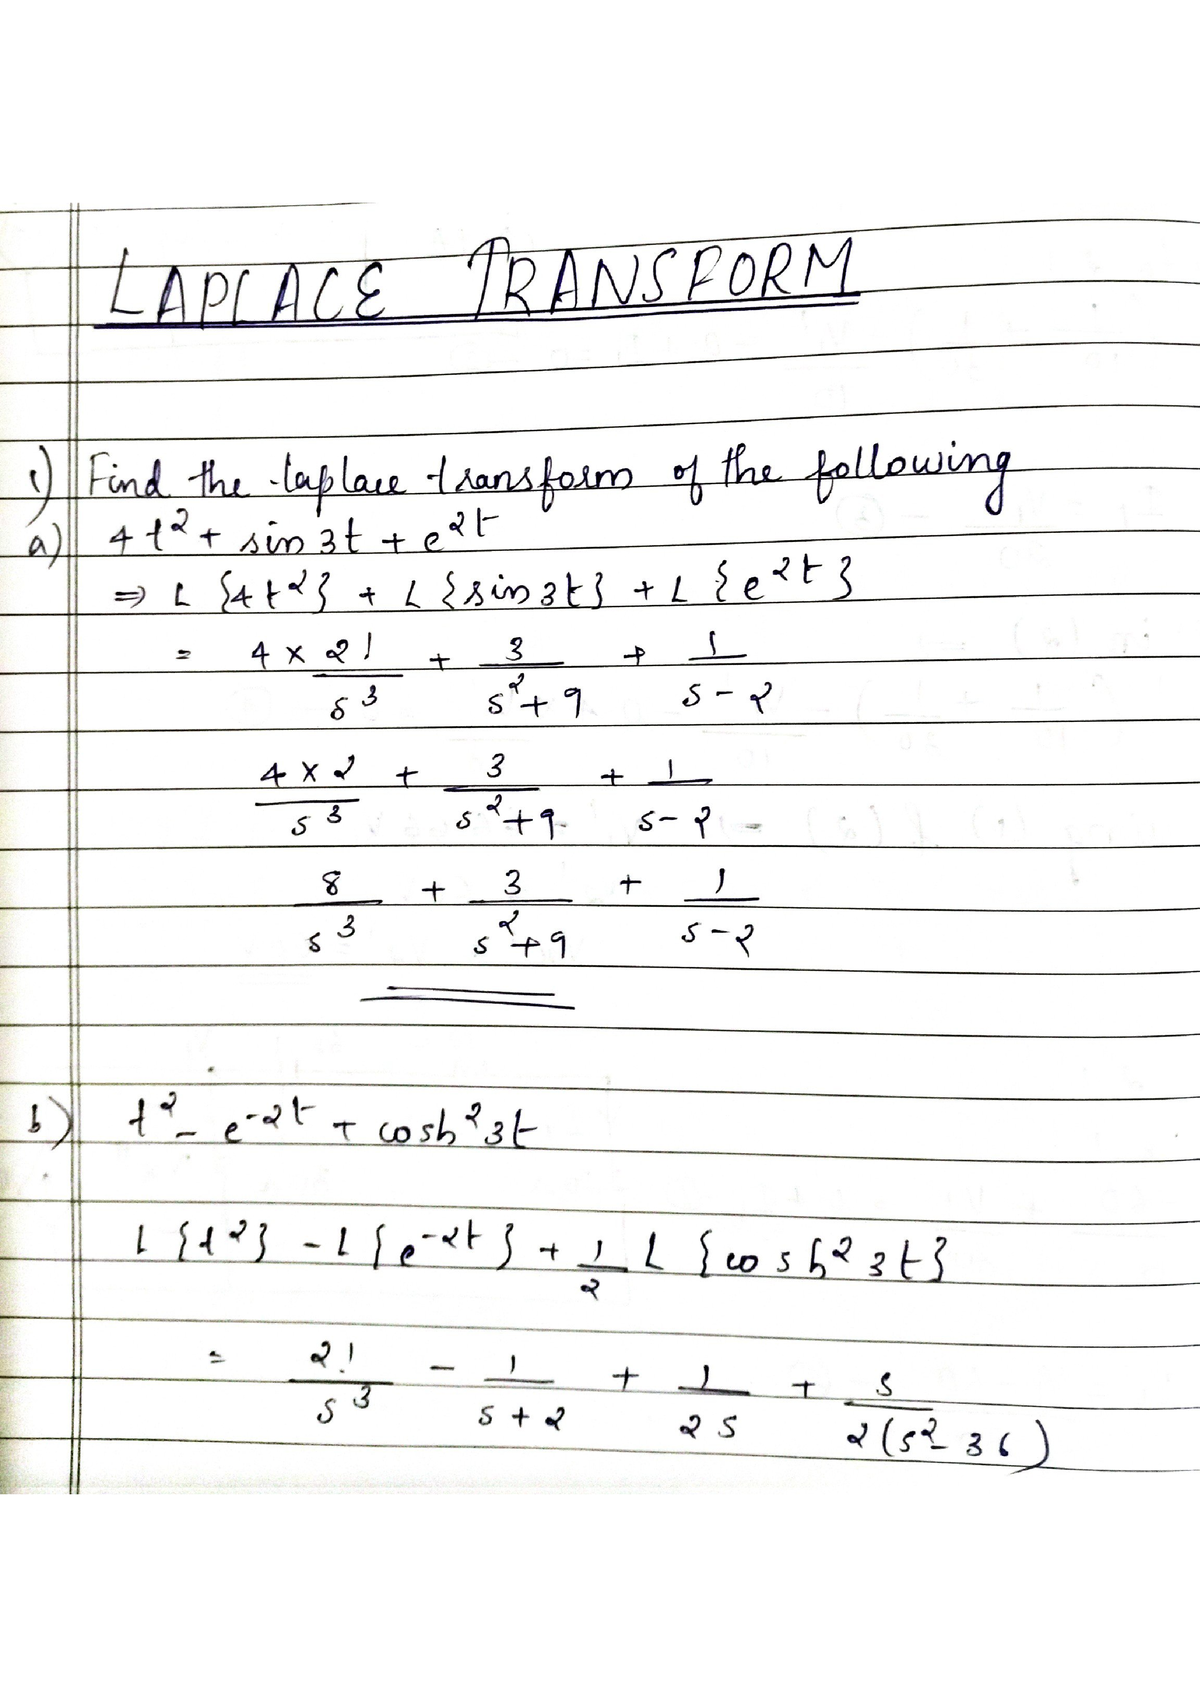 LAPLACE TRANSFORM
1) Find the laplace transform of the following
a) 4t² + sin 3t + e^2t
⇒ L {4t²} + L {sin 3t} + L {e^2t}
= 4 × 2!/s³ + 3/s²+9 + 1/s-2
4 × 2/s³ + 3/s²+9 + 1/s-2
8/s³ + 3/s²+9 + 1/s-2
b) t² - e^-2t + cosh² 3t
L {t²} - L {e^-2t} + 1/2 L {cosh² 3t}
= 2!/s³ - 1/s+2 + 1/2s + s/2(s²-36)